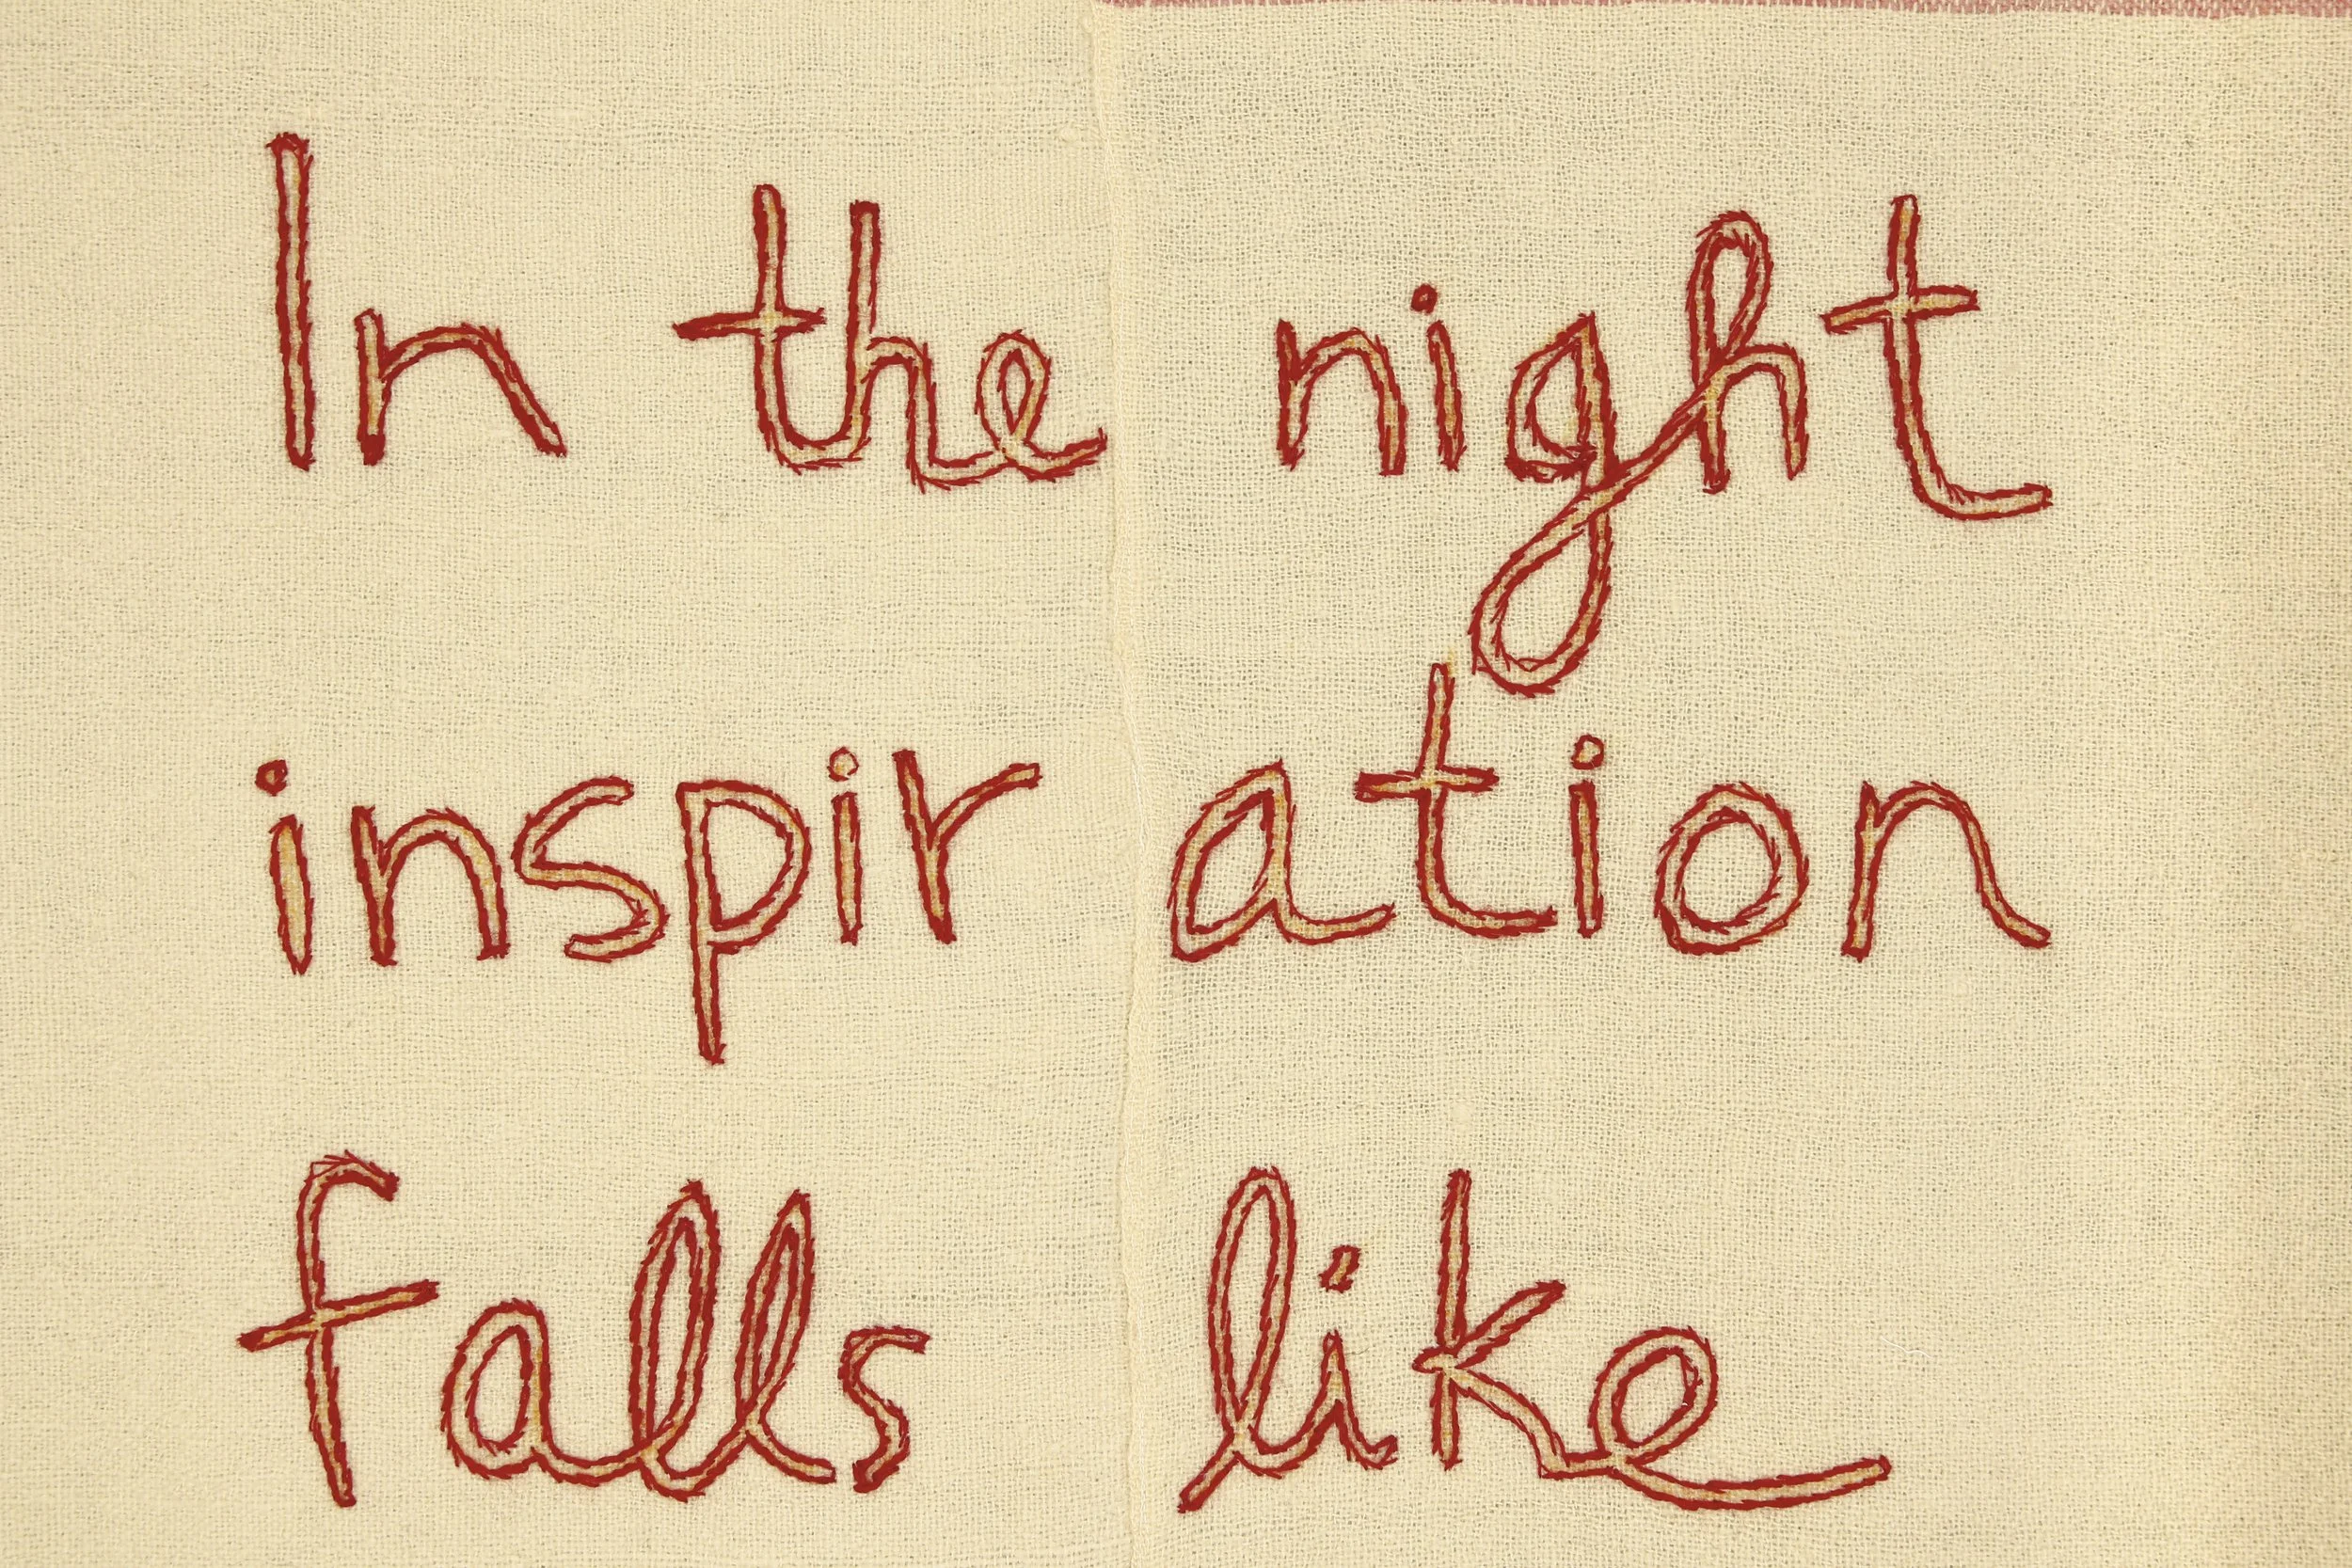 In the night
inspiration
falls like